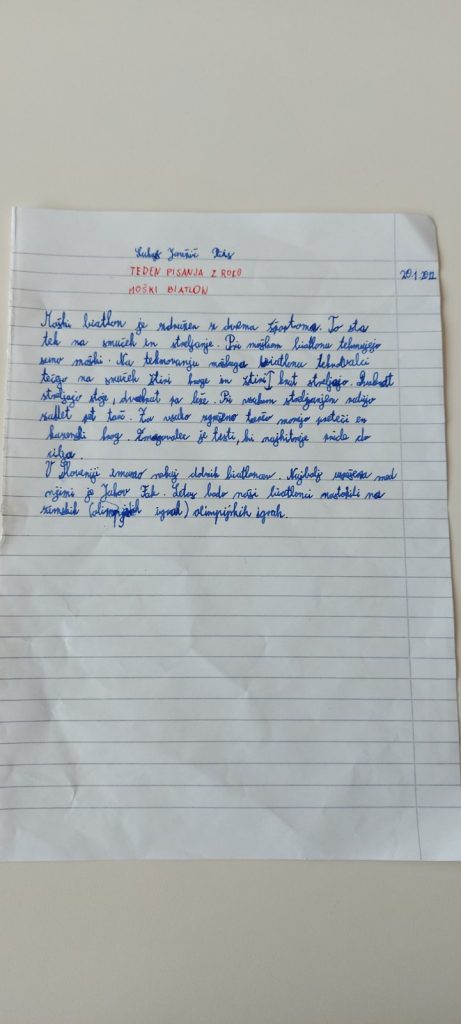 TEDEN PISANJA Z ROKO
20.1.2022
MOŠKI BIATLON
Moški biatlon je združen z dvema športoma. To sta
tek na smučeh in streljanje. Pri moškem biatlonu tekmujejo
samo moški. Na tekmovanju moškega biatlona tekmovalci
tečejo na smučeh štiri kroge in štiri krat streljajo. Dvakrat
streljajo stoje i dvakrat pa leže. Pri vsakem streljanjem
zadet pet tarč. Za vsako zgrešeno tarčo morejo preteči en
kazenski krog. Zmagovalec je tisti, ki najhitreje pride do
cilja.
V Sloveniji imamo nekaj dobrih biatloncev. Najbolj uspešen med
njimi je Jakov Fak. Letos bodo naši biatlonci nastopili na
zimskih (olimpijskih igrah) olimpijskih igrah.